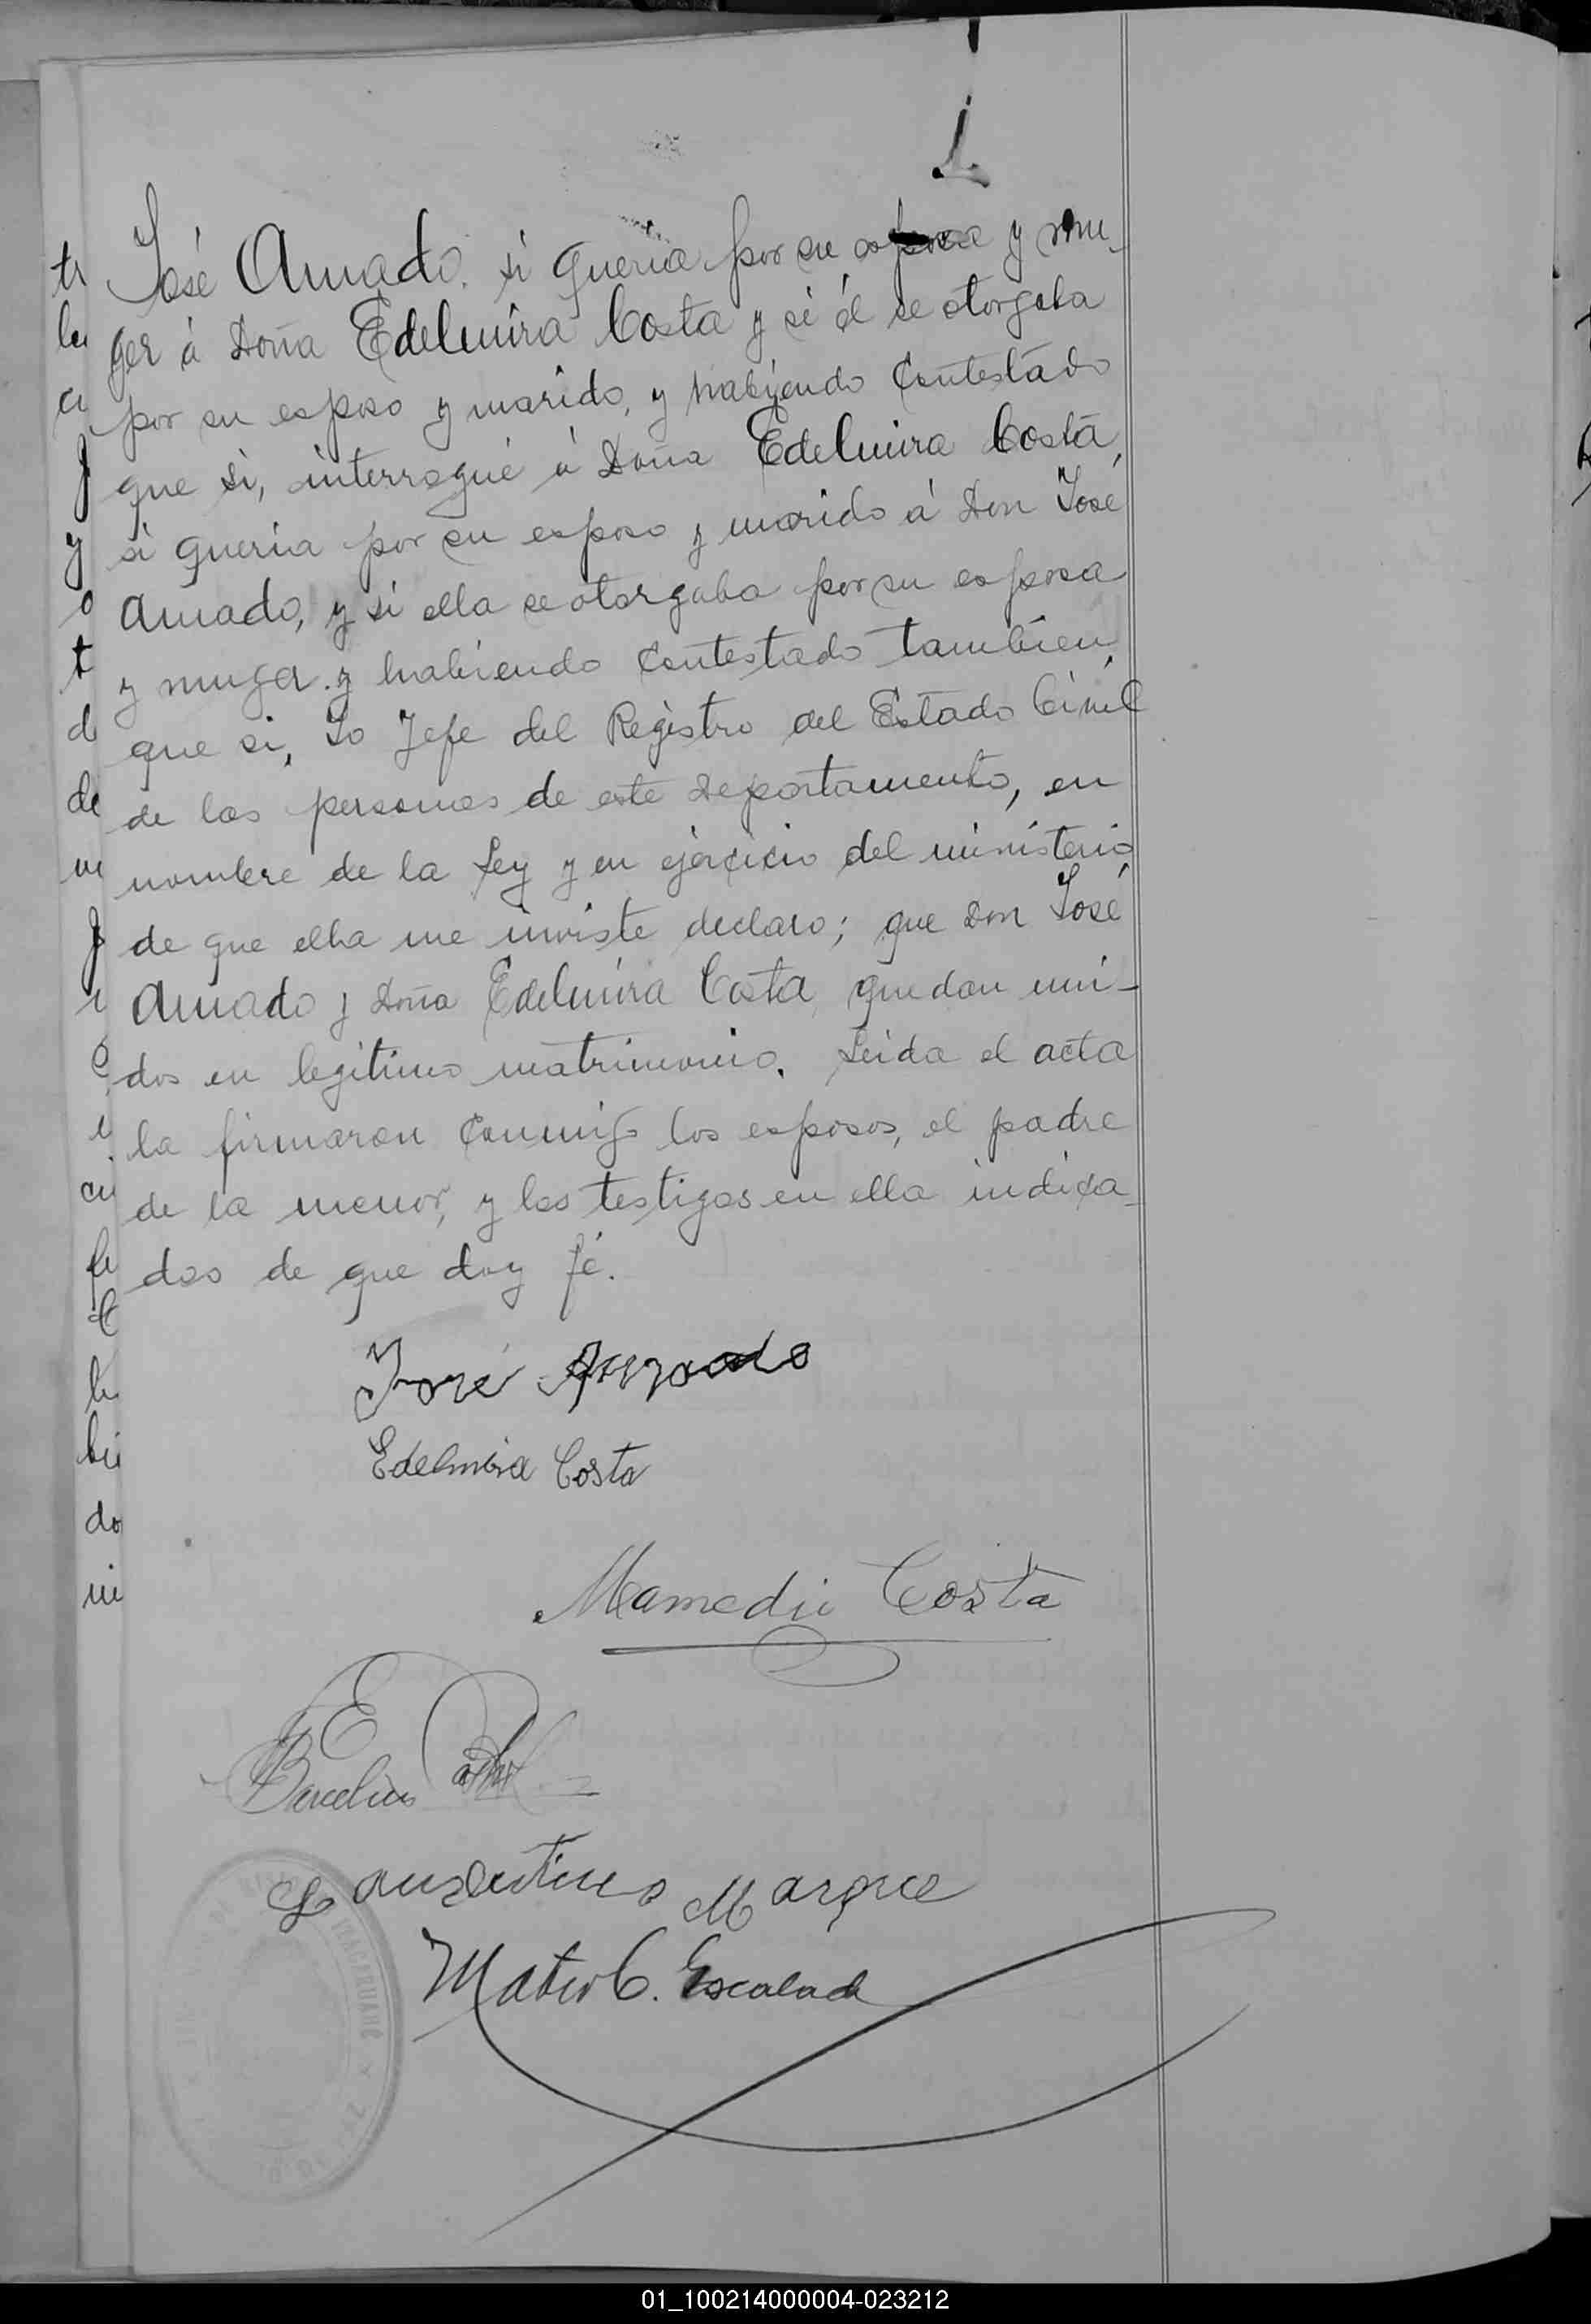 José Amado, si queria por su esposa y mu-
ger á Doña Edelmira Costa y si él se otorgaba
por su esposo y marido, y habiendo contestado
que si, interrogué á Doña Edelmira Costa,
si queria por su esposo y marido á Don José
Amado, y si ella se otorgaba por su esposa
y muger y habiendo contestado tambien,
que si, Yo Jefe del Registro del Estado Civil
de las personas de este Departamento, en
nombre de la Ley y en ejercicio del ministerio
de que ella me inviste declaro; que Don José
Amado y Doña Edelmira Costa, quedan uni-
dos en legitimo matrimonio. Leida el acta
la firmaron conmigo los esposos, el padre
de la menor, y los testigos en ella indica-
dos de que doy fé.
José Amado
Edelmira Costa
Mamedii Costa
Marque
Mateo C. Escalada
01_100214000004-023212